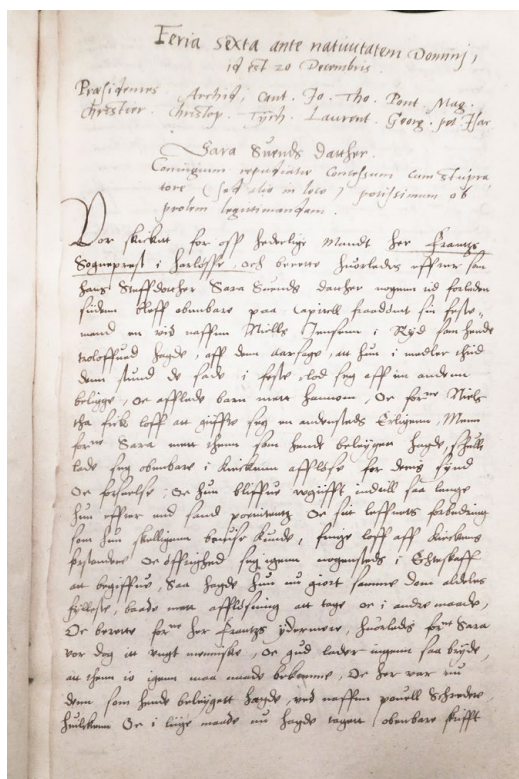 Feria sexta ante nativitatem Domini,
id est 20 Decembris.
Præsidentes Archid, Cant. Jo. Tho. Pont. Mag.
Christier. Christop. Tych. Laurent. Georg. pet Isac
Sara Suends daatther.
Coniugium repudiatæ concessum cum stupra
tore (sed alio in loco) potissimum ob
prolem legitimandam.
Vor skicket for oss hederlige Mandt her Frantzs
Sogneprest i Harløsse, och berette huorledes effter som
hans Steffdotther Sara Suends daatther nogenn tid forleden
siiden bleff obenbare paa Capitell fraadømt sin feste-
mand en vid naffnn Niells Jensenn i Ryd som hende
troloffued hagde, aff denn aarsage, att hun i medler thid
denn stund de sade i feste lod seg aff en andenn
beligge, oc afflede barn mett hannom, Oc forne Niels
tha fick loff att giffte seg en andensteds Erligenn, Menn
forne Sara mett thenn som hende beligget hagde, skulle
lade seg obenbare i Kirckenn affløse for deris synd
Oc forseelse, Oc hun bliffue ugifft indtill saa lenge
hun effter en sand poenitentz Oc sit leffnets forbedring
som hun skelligenn beuise kunde, finge loff aff Kirckens
forstandere Oc øffrighed seg igenn nogensteds i Echteskaff
att begiffue, Saa hagde hun nu giort samme dom aldeles
fyllest, baade mett affløsning att tage oc i andre maade,
Oc berette forne her Frantzs ydermere, huorleds forne Sara
vor dog it ungt menniske, oc gud lader ingenn saa bryde,
att thenn io igenn maa naade bekomme, Oc her var nu
denn som hende beligget hagde, ved naffnn pouell Schreder,
huilckenn Oc i liige maade nu hagde tagett obenbare skrifft